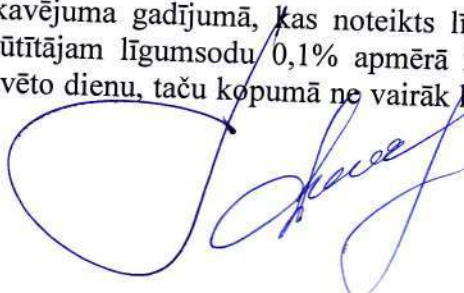 kavējuma gadījumā, kas noteikts
ūtītājam līgumsodu 0,1% apmērā
vēto dienu, taču kopumā ne vairāk